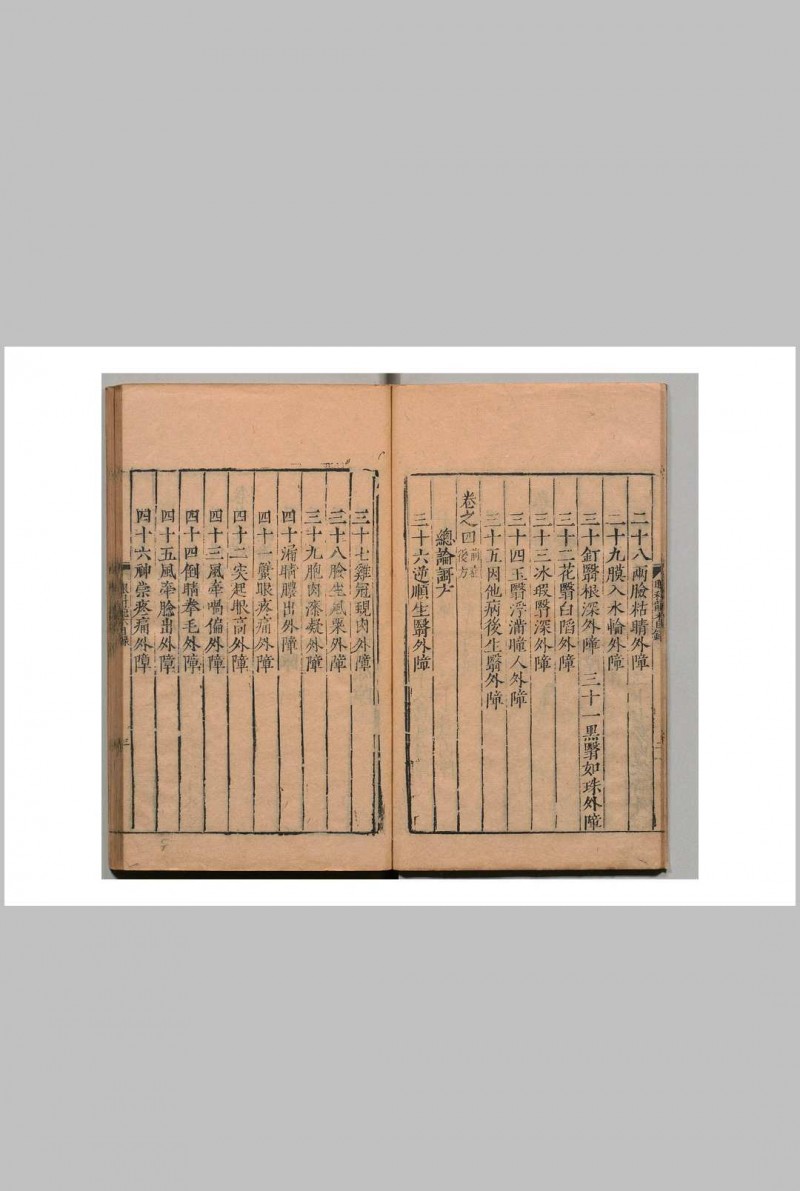 二十八兩臉粘睛外障
二十九膜入水輪外障
三十釘瞖根深外障 三十一黑瞖如珠外障
三十二花瞖白陷外障
三十三冰瑕瞖深外障
三十四玉瞖浮滿瞳人外障
三十五因他病後生瞖外障
卷之四 後方
總論謌方
三十六逆順生瞖外障
三十七雞冠蜆肉外障
三十八臉生風粟外障
三十九胞肉濼凝外障
四十漏睛膿出外障
四十一蟹眼疼痛外障
四十二突起眼高外障
四十三風牽喎偏外障
四十四倒睫拳毛外障
四十五風牽臉出外障
四十六神祟疼痛外障
三